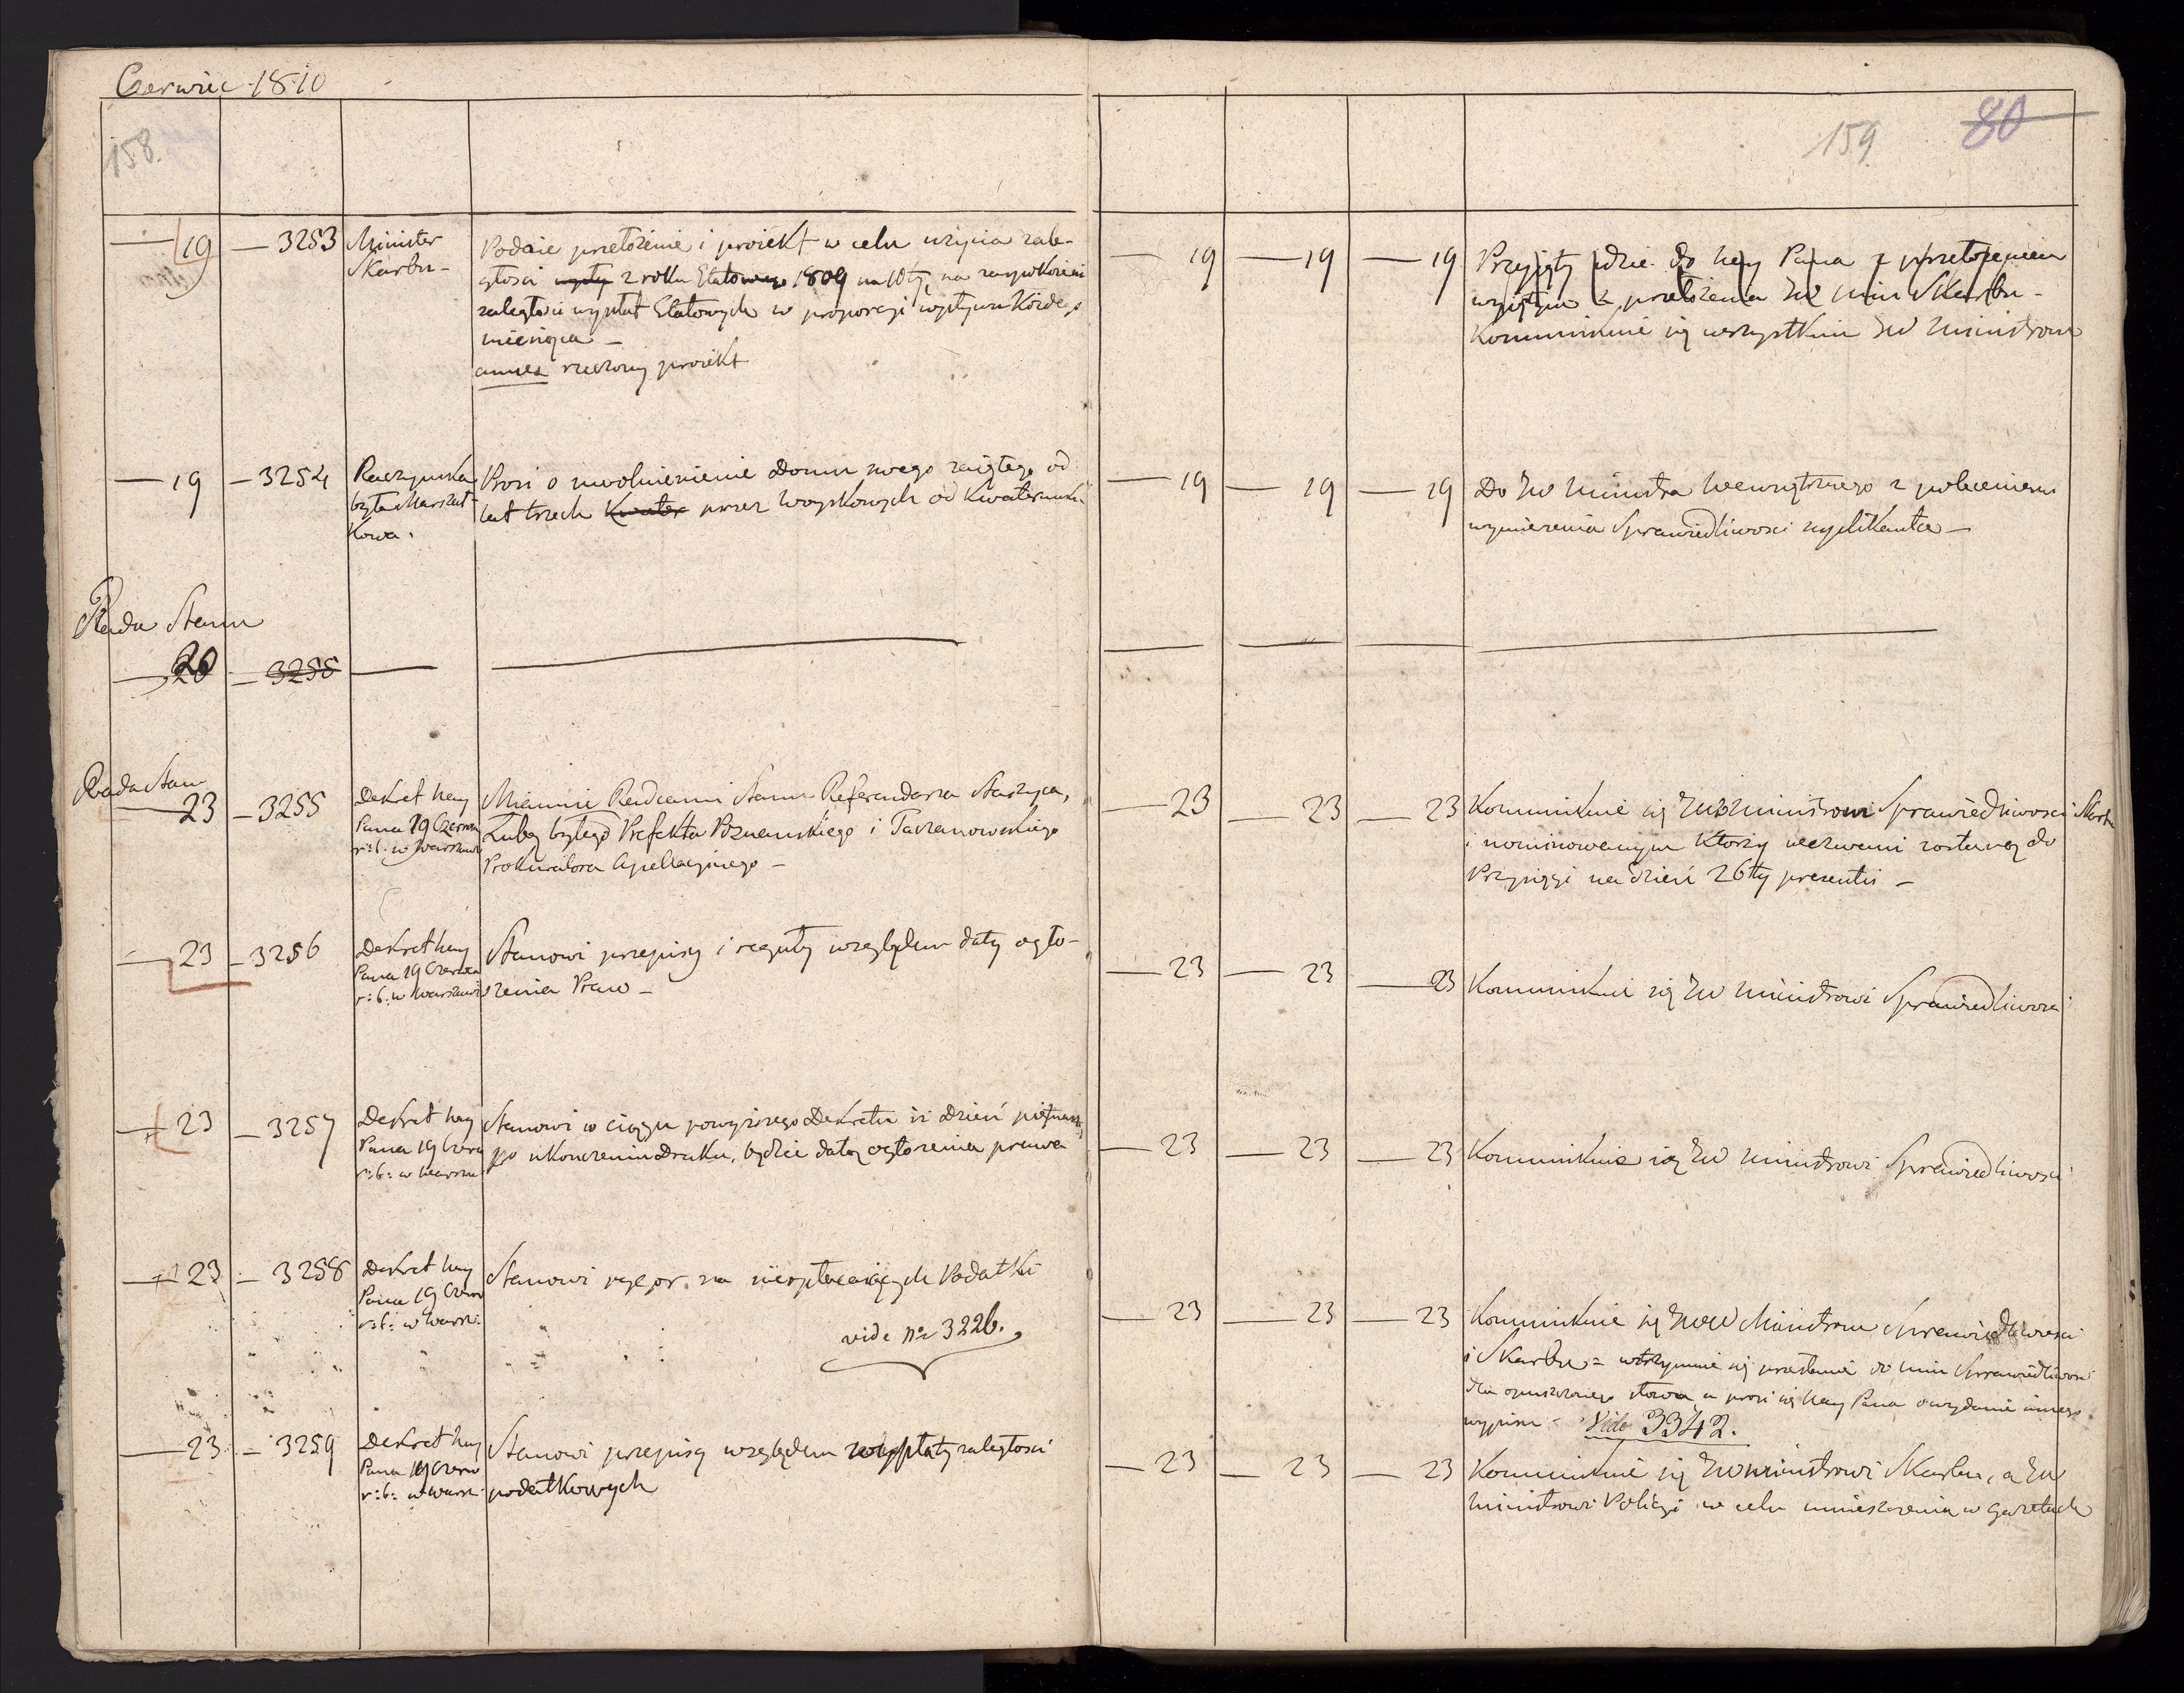 Czerwiec 1810
158.
19 — 3253 Minister Skarbu —
Podaie przełożenie i proiekt w celu użycia zale-
głości z roku Etatowego 1809 na 10ty, na zaspokoienie
zaległości wypłat Etatowych w proporcyi wpływu Każdego
miesiąca —
annex rzeczony proiekt
— 19 — 3254 Raczynska była Marszał- kowa.
Prosi o uwolnienienie Domu swego zaiętego od
lat trzech Kwater przez Woyskowych od Kwaterunku
Rada Stanu
— 20 — 3255 —
Rada Stanu
— 23 — 3255 Dekret Nay Pana 19 Czerwca r: b: w Warszawie
Mianuie Radcami Stanu Referendarza Staszyca,
byłego Prefekta Poznanskiego i Taczanowskiego
Prokuratora Apellacyinego —
— 23 — 3256 Dekret Nay Pana 19 Czerwca r: b: w Warszawie
Stanowi przepisy i reguły względem daty ogło-
szenia Praw —
— 23 — 3257 Dekret Nay Pana 19 Czerw r: b: w Warsza
Stanowi w ciągu powyższego Dekretu iż dzień
po ukonczeniu Druku, będzie datą ogłoszenia prawa
— 23 — 3258 Dekret Nay Pana 19 Czerw r: b: w Warsz:
Stanowi rygor na nieopłacaiących Podatki
vide no 3226.
— 23 — 3259 Dekret Nay Pana 19 Czerw r: b: w Warsz:
Stanowi przepisy względem wypłaty zaległości
podatkowych
159 80
— 19 — 19 — 19 Przyięty idzie do Nay Pana z przełożeniem
z przełożenia JW Min Skarbu —
Kommunikuie się wszystkim JW Ministrom
— 19 — 19 — 19 Do JW Ministra Wewnętrznego z poleceniem
wymierzenia Sprawiedliwosci suplikantce —
— 23 — 23 — 23 Kommunikuie się JWW Ministrom Sprawiedliwosci Skarbu
i nominowanym Którzy wezwani zostaną do
Przysięgi na dzień 26ty presentis —
— 23 — 23 — 23 Kommunikuie się JW Ministrowi Sprawiedliwosci
— 23 — 23 — 23 Kommunikuie się JW Ministrowi Sprawiedliwosci
— 23 — 23 — 23 Kommunikuie się JWW Ministrom Sprawiedliwosci
i Skarbu = wstrzymuie się przesłanie do Min Sprawiedliwosci
dla opuszczonego słowa a prosi się Nay Pana o wydanie innego
wypisu — Vide 3342.
— 23 — 23 — 23 Kommunikuie się JW Ministrowi Skarbu, a JW
Ministrowi Policyi w celu umieszczenia w Gazetach